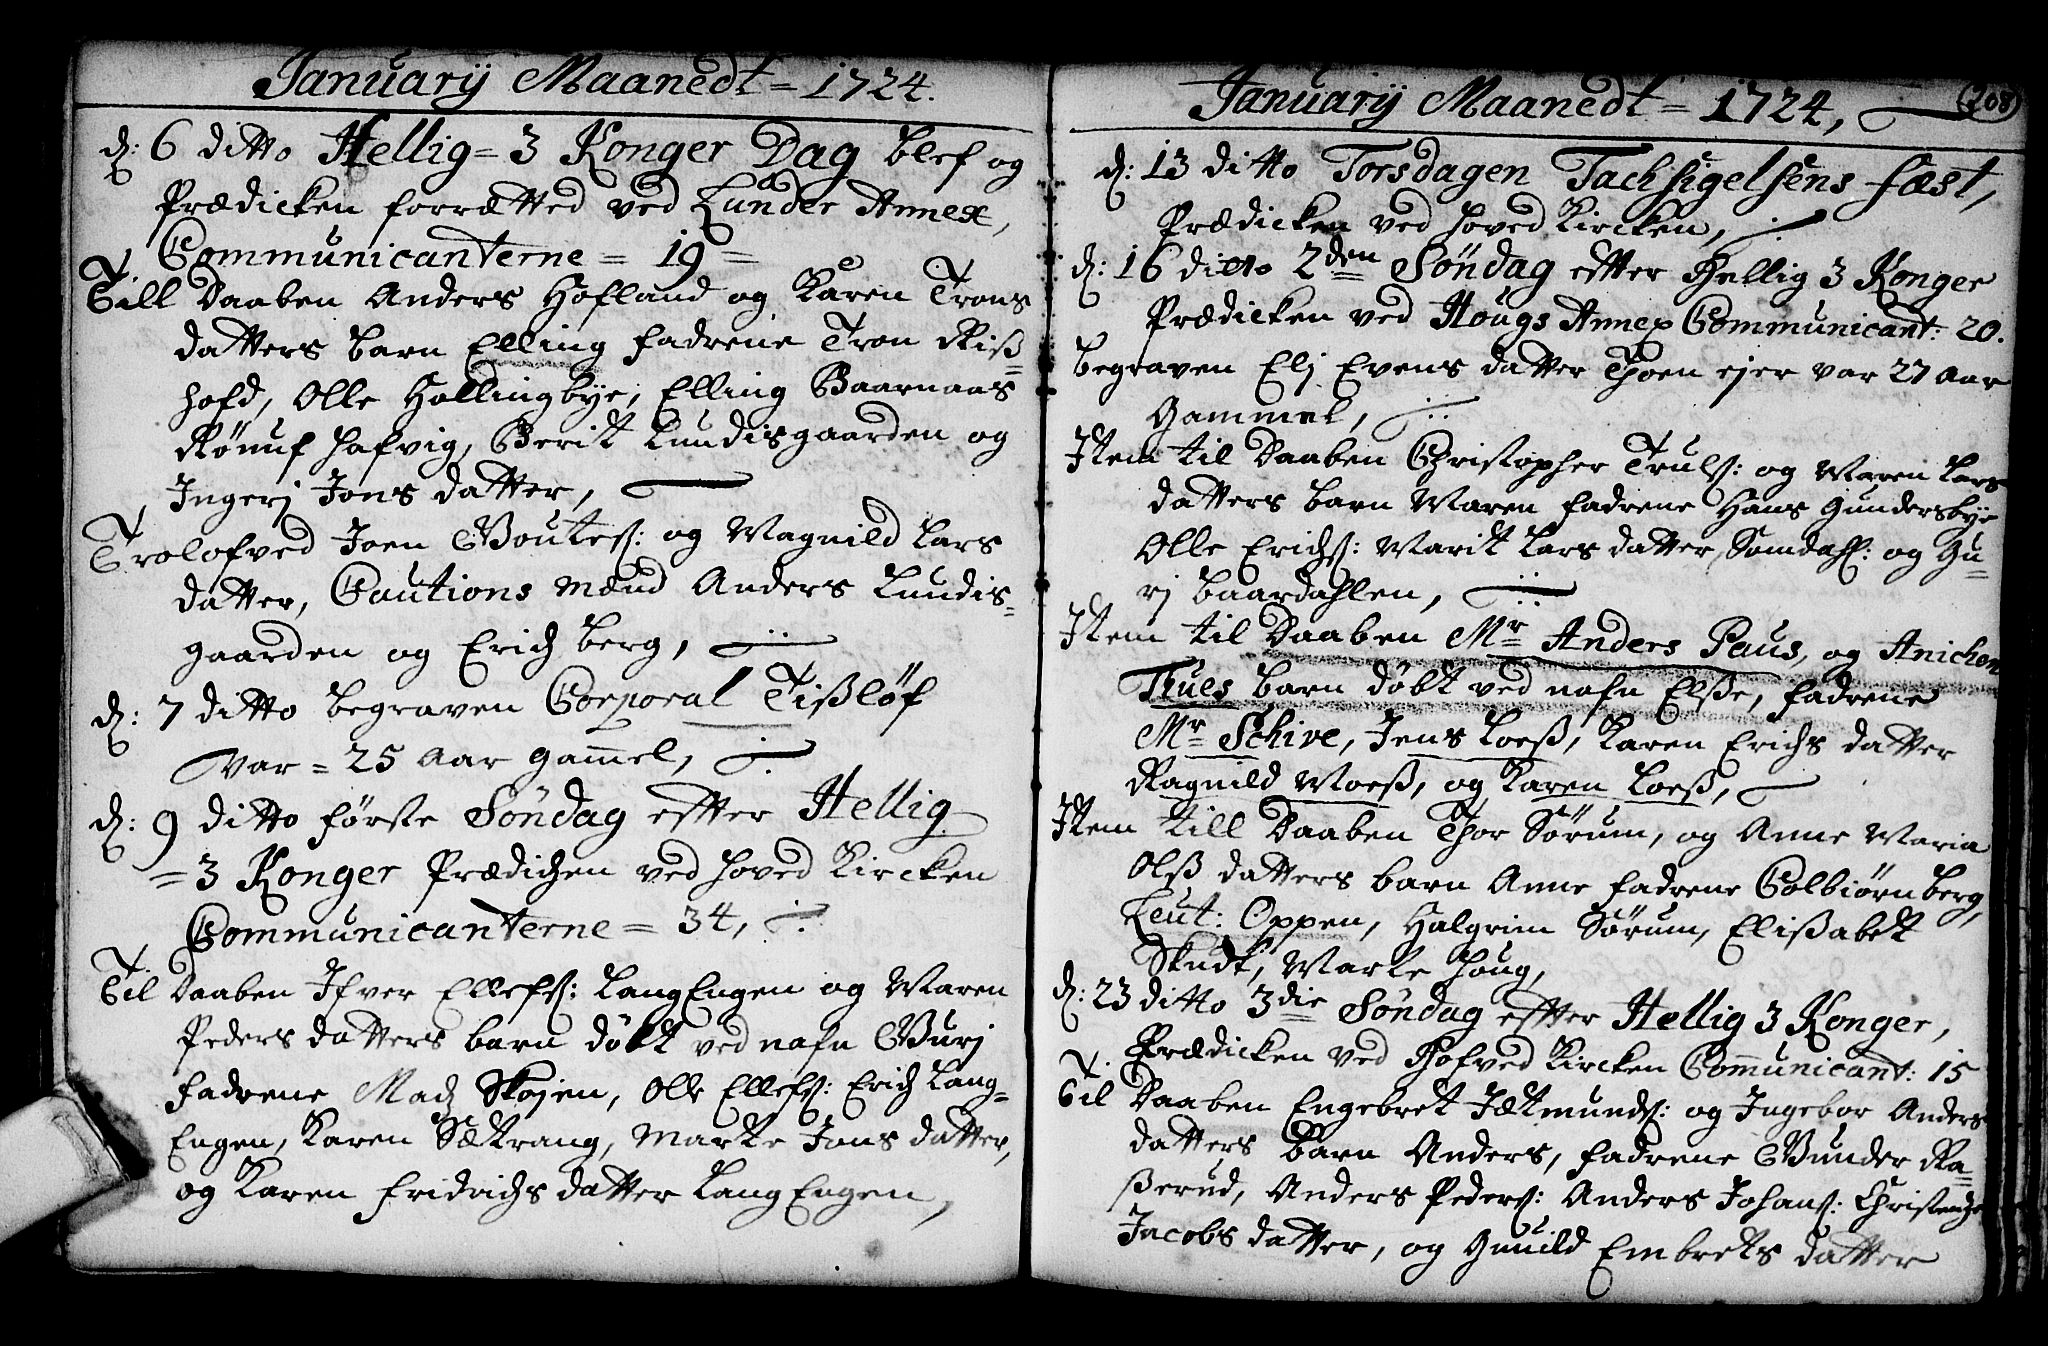 Januarij Maanedt = 1724.
d: 6 ditto Hellig = 3 Konger Dag blef og
Prædicken forrætted ved Lunder Annex,
Communicanterne = 19 =
Till Daaben Anders Hofland og Karen Trons
datters barn Elling fadrene Tron Riß=
hofd, Olle Hallingbye, Elling Baarnaas
Rønuf Hafvig, Berit Lundisgaarden og
Ingerj Jons datter,
Trolofved Joen Goutes: og Magnild Lars
datter, Cautions mænd Anders Lundis=
gaarden og Erich Berg,
d: 7 ditto begraven Corporal Tißløf
var = 25 Aar gam̄el,
d: 9 ditto første Søndag efter Hellig
= 3 Konger Prædichen ved Hoved Kircken
Communicanterne = 34,
Til Daaben Ifver Ellefs: LangEngen og Maren
Peders datters barn døbt ved nafn Gurj
fadrene Mads Skojen, Olle Ellefs: Erich Lang=
Engen, Karen Sætrang, Marte Jons datter,
og Karen Fridrichs datter LangEngen,
Januarij Maanedt = 1724,
(208)
d: 13 ditto Torsdagen Tachsigelsens fæst,
Prædicken ved Hoved Kircken,
d: 16 ditto 2den Søndag efter Hellig 3 Konger
Prædicken ved Hougs Annex Communicant: 20.
begraven Elj Evens datter Thoen ejer var 27 Aar
Gammel,
Item til Daaben Christopher Truls: og Maren Lars
datters barn Maren fadrene Hans Gundersbye
Olle Erichs: Marit Lars datter, Somdahl: og Gu=
rj Baardahlen,
Item til Daaben Mr Anders Paus, og Anichen
Trules barn døbt ved nafn Elße, fadrene
Mr Schive, Jens Loeß, Karen Erichs datter
Ragnild Moeß, og Karen Loeß,
Item till Daaben Thor Sørum, og Anne Maria
Olß datters barn Anne fadrene Colbiørn Berg,
Leut: Oppen, Halgrim Sørum, Elißabet
Skudt, Marte Houg,
d: 23 ditto 3die Søndag efter Hellig 3 Konger,
Prædicken ved Hofved Kircken Com̄unicant: 15
Til Daaben Engebret Jætmunds: og Ingebor Anders
datters barn Anders, fadrene Gunder Ra=
ßerud, Anders Peders: Anders Johans:
Jacobs datter, og Gunild Embrets datter